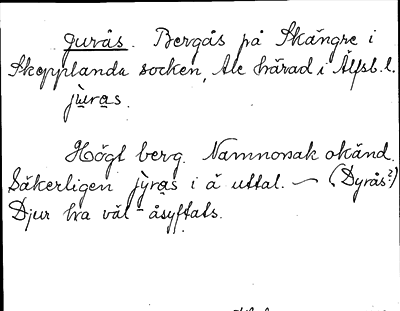 Jurås. Bergås på Skångre i
Skepplanda socken, Ale härad i Älfsb. l.
jùras.
Högt berg. Namnorsak okänd.
Säkerligen jỳras i å uttal. — (Dyrås?)
Djur tra väl åsyftats.